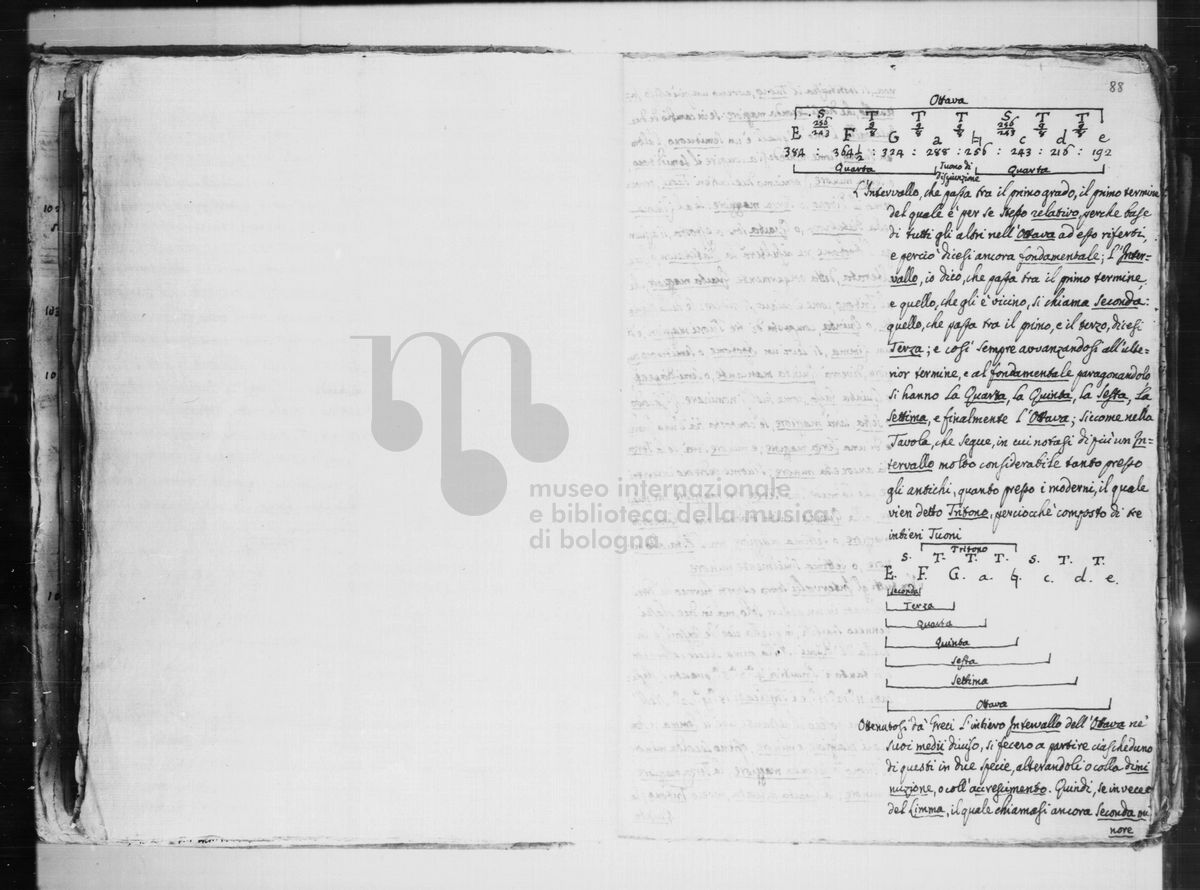 88
Ottava
S T T T S T T
256/243 9/8 9/8 9/8 256/243 9/8 9/8
E F G a ♮ c d e
384 : 364½ : 324 : 288 : 256 : 243 : 216 : 192
Quarta Tuono di disgiunzione Quarta
L'Intervallo, che passa tra il primo grado, il primo termine
del quale è per se stesso relativo, perche base
di tutti gli altri nell'Ottava ad esso riferti,
e perciò dicesi ancora fondamentale; l'Inter-
vallo, io dico, che passa tra il primo termine,
e quello, che gli è vicino, si chiama Seconda:
quello, che passa tra il primo, e il terzo, dicesi
Terza; e così sempre avvanzandosi all'ulte-
rior termine, e al fondamentale paragonandolo
si hanno la Quarta, la Quinta, la Sesta, la
Settima, e finalmente l'Ottava; siccome nella
Tavola, che segue, in cui notasi di più un In-
tervallo molto considerabile tanto presso
gli antichi, quanto presso i moderni, il quale
vien detto Tritono, perciocchè composto di tre
intieri Tuoni
Tritono
S. T. T. T. S. T. T.
E. F. G. a. ♮. c. d. e.
Seconda
Terza
Quarta
Quinta
Sesta
Settima
Ottava
Ottenutosi da' Greci l'intiero Intervallo dell'Ottava ne'
suoi medii diviso, si fecero a partire ciascheduno
di questi in due specie, alterandoli o colla dimi
nuzione, o coll'accrescimento. Quindi, se in vece
del Limma, il quale chiamasi ancora Seconda mi-
nore
museo internazionale
e biblioteca della musica
di bologna